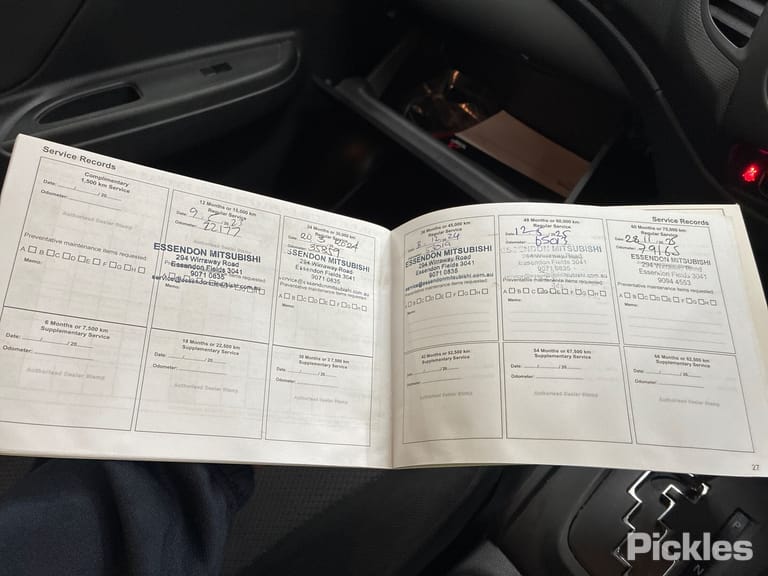 Service Records
Complimentary
1,500 km Service
Date: / / 20
Odometer:
Authorised Dealer Stamp
Preventative maintenance items requested:
A B C D E F G H
Memo:
12 Months or 15,000 km
Regular Service
Date:
Odometer: 22177
ESSENDON MITSUBISHI
294 Wirraway Road
Essendon Fields 3041
9071 0835
service@essendonmitsubishi.com.au
Memo:
24 Months or 30,000 km
Regular Service
Date: 2024
Odometer: 35859
ESSENDON MITSUBISHI
294 Wirraway Road
Essendon Fields 3041
9071 0835
service@essendonmitsubishi.com.au
Preventative maintenance items requested:
A B C D E F G H
Memo:
6 Months or 7,500 km
Supplementary Service
Date: / / 20
Odometer:
Authorised Dealer Stamp
18 Months or 22,500 km
Supplementary Service
Date: / / 20
Odometer:
Authorised Dealer Stamp
30 Months or 37,500 km
Supplementary Service
Date: / / 20
Odometer:
Authorised Dealer Stamp
Service Records
36 Months or 45,000 km
Regular Service
ESSENDON MITSUBISHI
294 Wirraway Road
Essendon Fields 3041
9071 0835
service@essendonmitsubishi.com.au
Preventative maintenance items requested:
A B C D E F G H
Memo:
48 Months or 60,000 km
Regular Service
Date:
Odometer: 65013
ESSENDON MITSUBISHI
294 Wirraway Road
Essendon Fields 3041
9071 0835
A B C D E F G H
Memo:
60 Months or 75,000 km
Regular Service
Date: 28 11 25
Odometer: 79165
ESSENDON MITSUBISHI
294 Wirraway Road
Essendon Fields 3041
9094 4553
Preventative maintenance items requested:
A B C D E F G H
Memo:
42 Months or 52,500 km
Supplementary Service
Date: / / 20
Odometer:
Authorised Dealer Stamp
54 Months or 67,500 km
Supplementary Service
Date: / / 20
Odometer:
Authorised Dealer Stamp
66 Months or 82,500 km
Supplementary Service
Date: / / 20
Odometer:
Authorised Dealer Stamp
27
P
Pickles